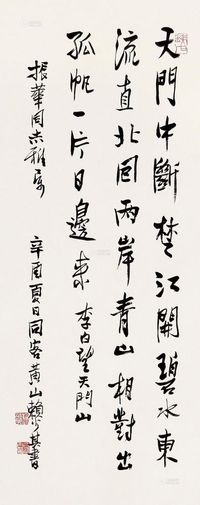 天門中斷楚江開碧水東
流直北回兩岸青山相對出
孤帆一片日邊來 李白望天門山
振華同志雅屬
辛酉夏日同客黃山賴少其書